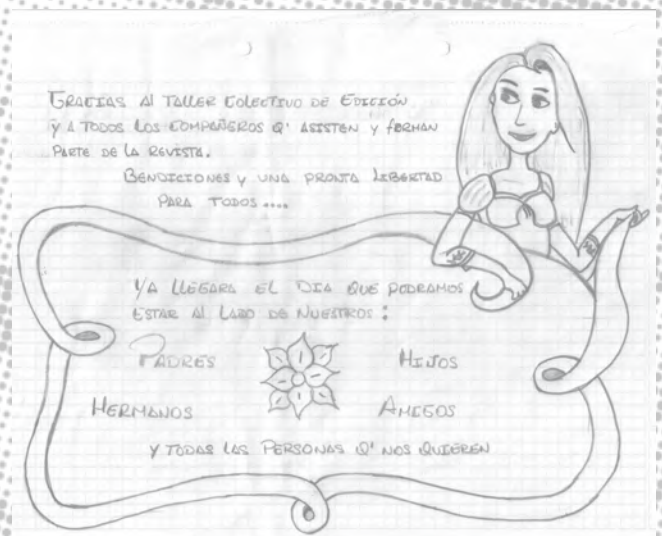 GRACIAS Al TALLER COLECTIVO DE EDICIÓN
Y A TODOS LOS COMPAÑEROS Q' ASISTEN Y FORMAN
PARTE DE LA REVISTA.
BENDICIONES Y UNA PRONTA LIBERTAD
PARA TODOS ....
YA LLEGARA EL DIA QUE PODRAMOS
ESTAR Al LADO DE NUESTROS :
PADRES HIJOS
HERMANOS AMIGOS
Y TODAS LAS PERSONAS Q' NOS QUIEREN